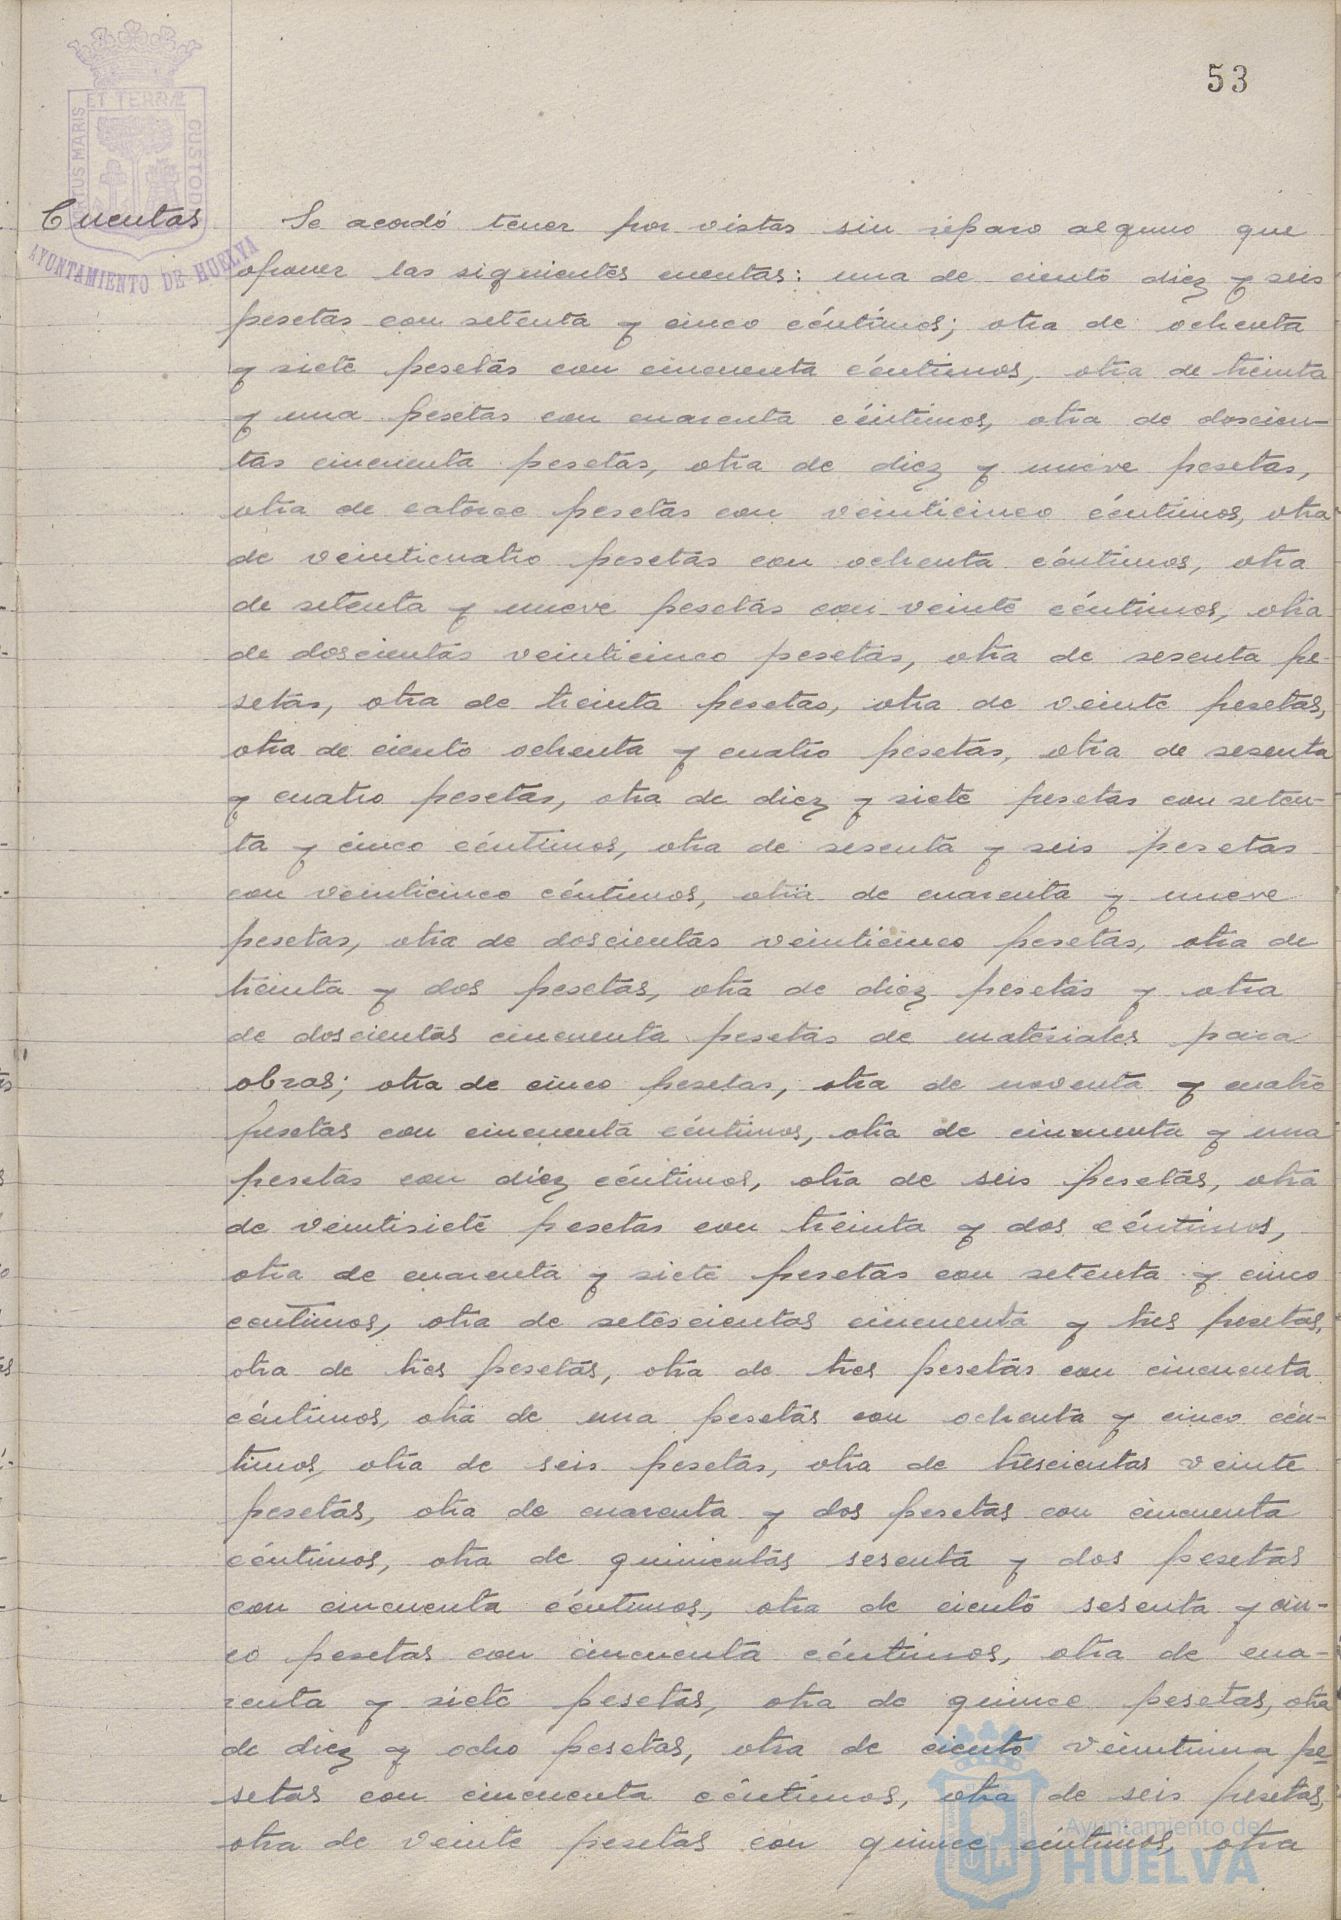 53
ET TERRÆ
PORTUS MARIS
CUSTOD
AYUNTAMIENTO DE HUELVA
Cuentas
Se acordó tener por vistas sin reparo alguno que
oponer las siguientes cuentas: una de ciento diez y seis
pesetas con setenta y cinco céntimos; otra de ochenta
y siete pesetas con cincuenta céntimos, otra de treinta
y una pesetas con cuarenta céntimos, otra de doscien-
tas cincuenta pesetas, otra de diez y nueve pesetas,
otra de catorce pesetas con veinticinco céntimos, otra
de veinticuatro pesetas con ochenta céntimos, otra
de setenta y nueve pesetas con veinte céntimos, otra
de doscientas veinticinco pesetas, otra de sesenta pe-
setas, otra de treinta pesetas, otra de veinte pesetas,
otra de ciento ochenta y cuatro pesetas, otra de sesenta
y cuatro pesetas, otra de diez y siete pesetas con seten-
ta y cinco céntimos, otra de sesenta y seis pesetas
con veinticinco céntimos, otra de cuarenta y nueve
pesetas, otra de doscientas veinticinco pesetas, otra de
treinta y dos pesetas, otra de diez pesetas y otra
de doscientas cincuenta pesetas de materiales para
obras; otra de cinco pesetas, otra de noventa y cuatro
pesetas con cincuenta céntimos, otra de cincuenta y una
pesetas con diez céntimos, otra de seis pesetas, otra
de veintisiete pesetas con treinta y dos céntimos,
otra de cuarenta y siete pesetas con setenta y cinco
centimos, otra de setescientas cincuenta y tres pesetas,
otra de tres pesetas, otra de tres pesetas con cincuenta
céntimos, otra de una pesetas con ochenta y cinco cén-
timos, otra de seis pesetas, otra de trescientas veinte
pesetas, otra de cuarenta y dos pesetas con cincuenta
céntimos, otra de quinientas sesenta y dos pesetas
con cincuenta céntimos, otra de ciento sesenta y cin-
co pesetas con cincuenta céntimos, otra de cua-
renta y siete pesetas, otra de quince pesetas, otra
de diez y ocho pesetas, otra de ciento veintiuna pe-
setas con cincuenta céntimos, otra de seis pesetas,
otra de veinte pesetas con quince céntimos, otra
Ayuntamiento de
HUELVA